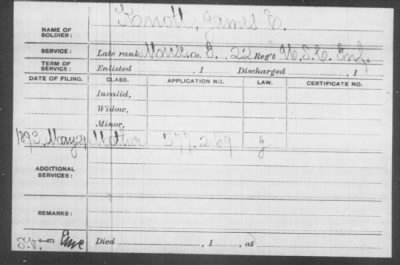 NAME OF SOLDIER: Knott, James E.
SERVICE: Late rank, Co. E, 22 Reg't U.S.C. Inf.
TERM OF SERVICE: Enlisted , 1 Discharged , 1
DATE OF FILING. CLASS. APPLICATION NO. LAW. CERTIFICATE NO.
Invalid,
Widow,
Minor,
1893, May Mother 577.269
ADDITIONAL SERVICES:
REMARKS:
Died , 1 , at